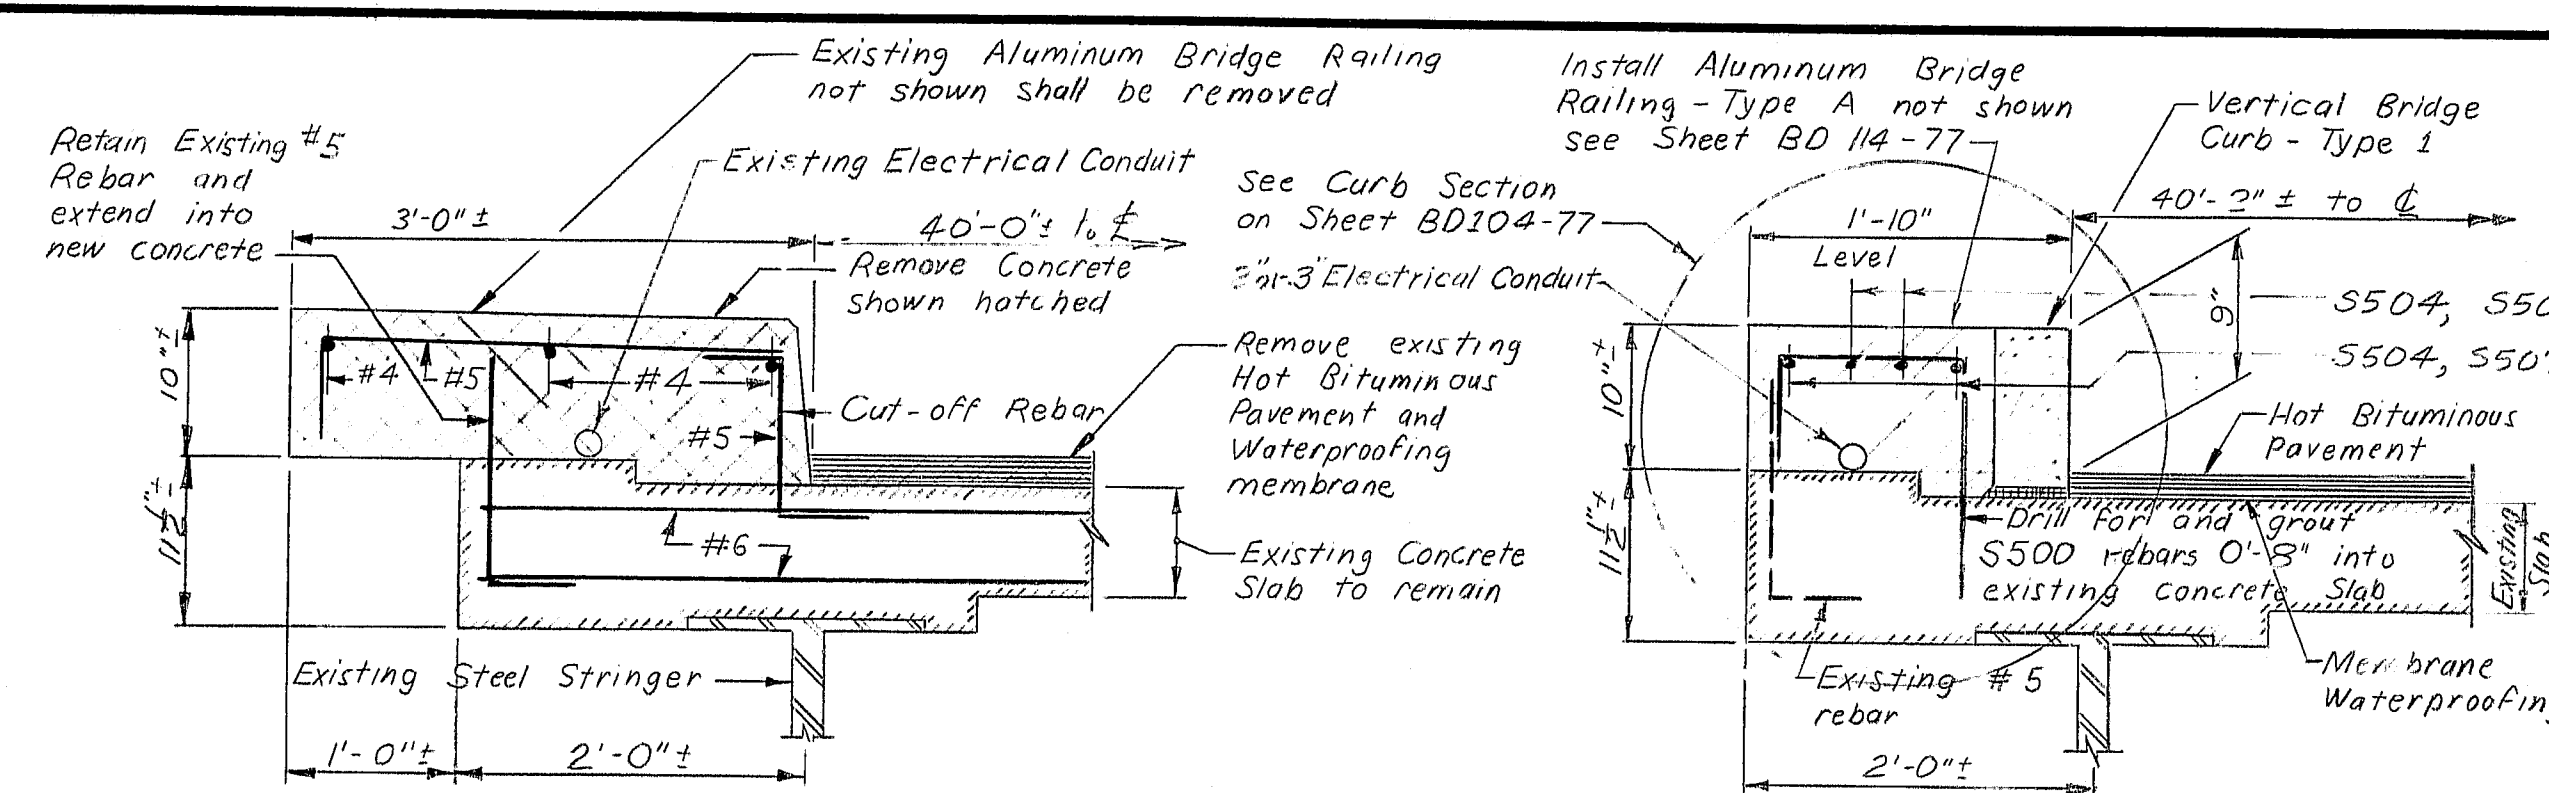 Existing Aluminum Bridge Railing
not shown shall be removed
Retain Existing #5
Rebar and
extend into
new concrete
Existing Electrical Conduit
3'-0" ±
40'-0" ±
Remove Concrete
shown hatched
10" ±
#4
#5
#4
Cut-off Rebar
#5
11½" ±
#6
Remove existing
Hot Bituminous
Pavement and
Waterproofing
membrane
Existing Concrete
Slab to remain
Existing Steel Stringer
1'-0" ±
2'-0" ±
Install Aluminum Bridge
Railing - Type A not shown
see Sheet BD 114-77
Vertical Bridge
Curb - Type 1
See Curb Section
on Sheet BD104-77
1'-10"
Level
40'- ± to ℄
Electrical Conduit
9"
S504,
S504,
10" ±
Hot Bituminous
Pavement
11½" ±
Drill for and grout
S500 rebars 0'-8" into
existing concrete Slab
Existing
Slab
Existing #5
rebar
Membrane
Waterproofing
2'-0" ±